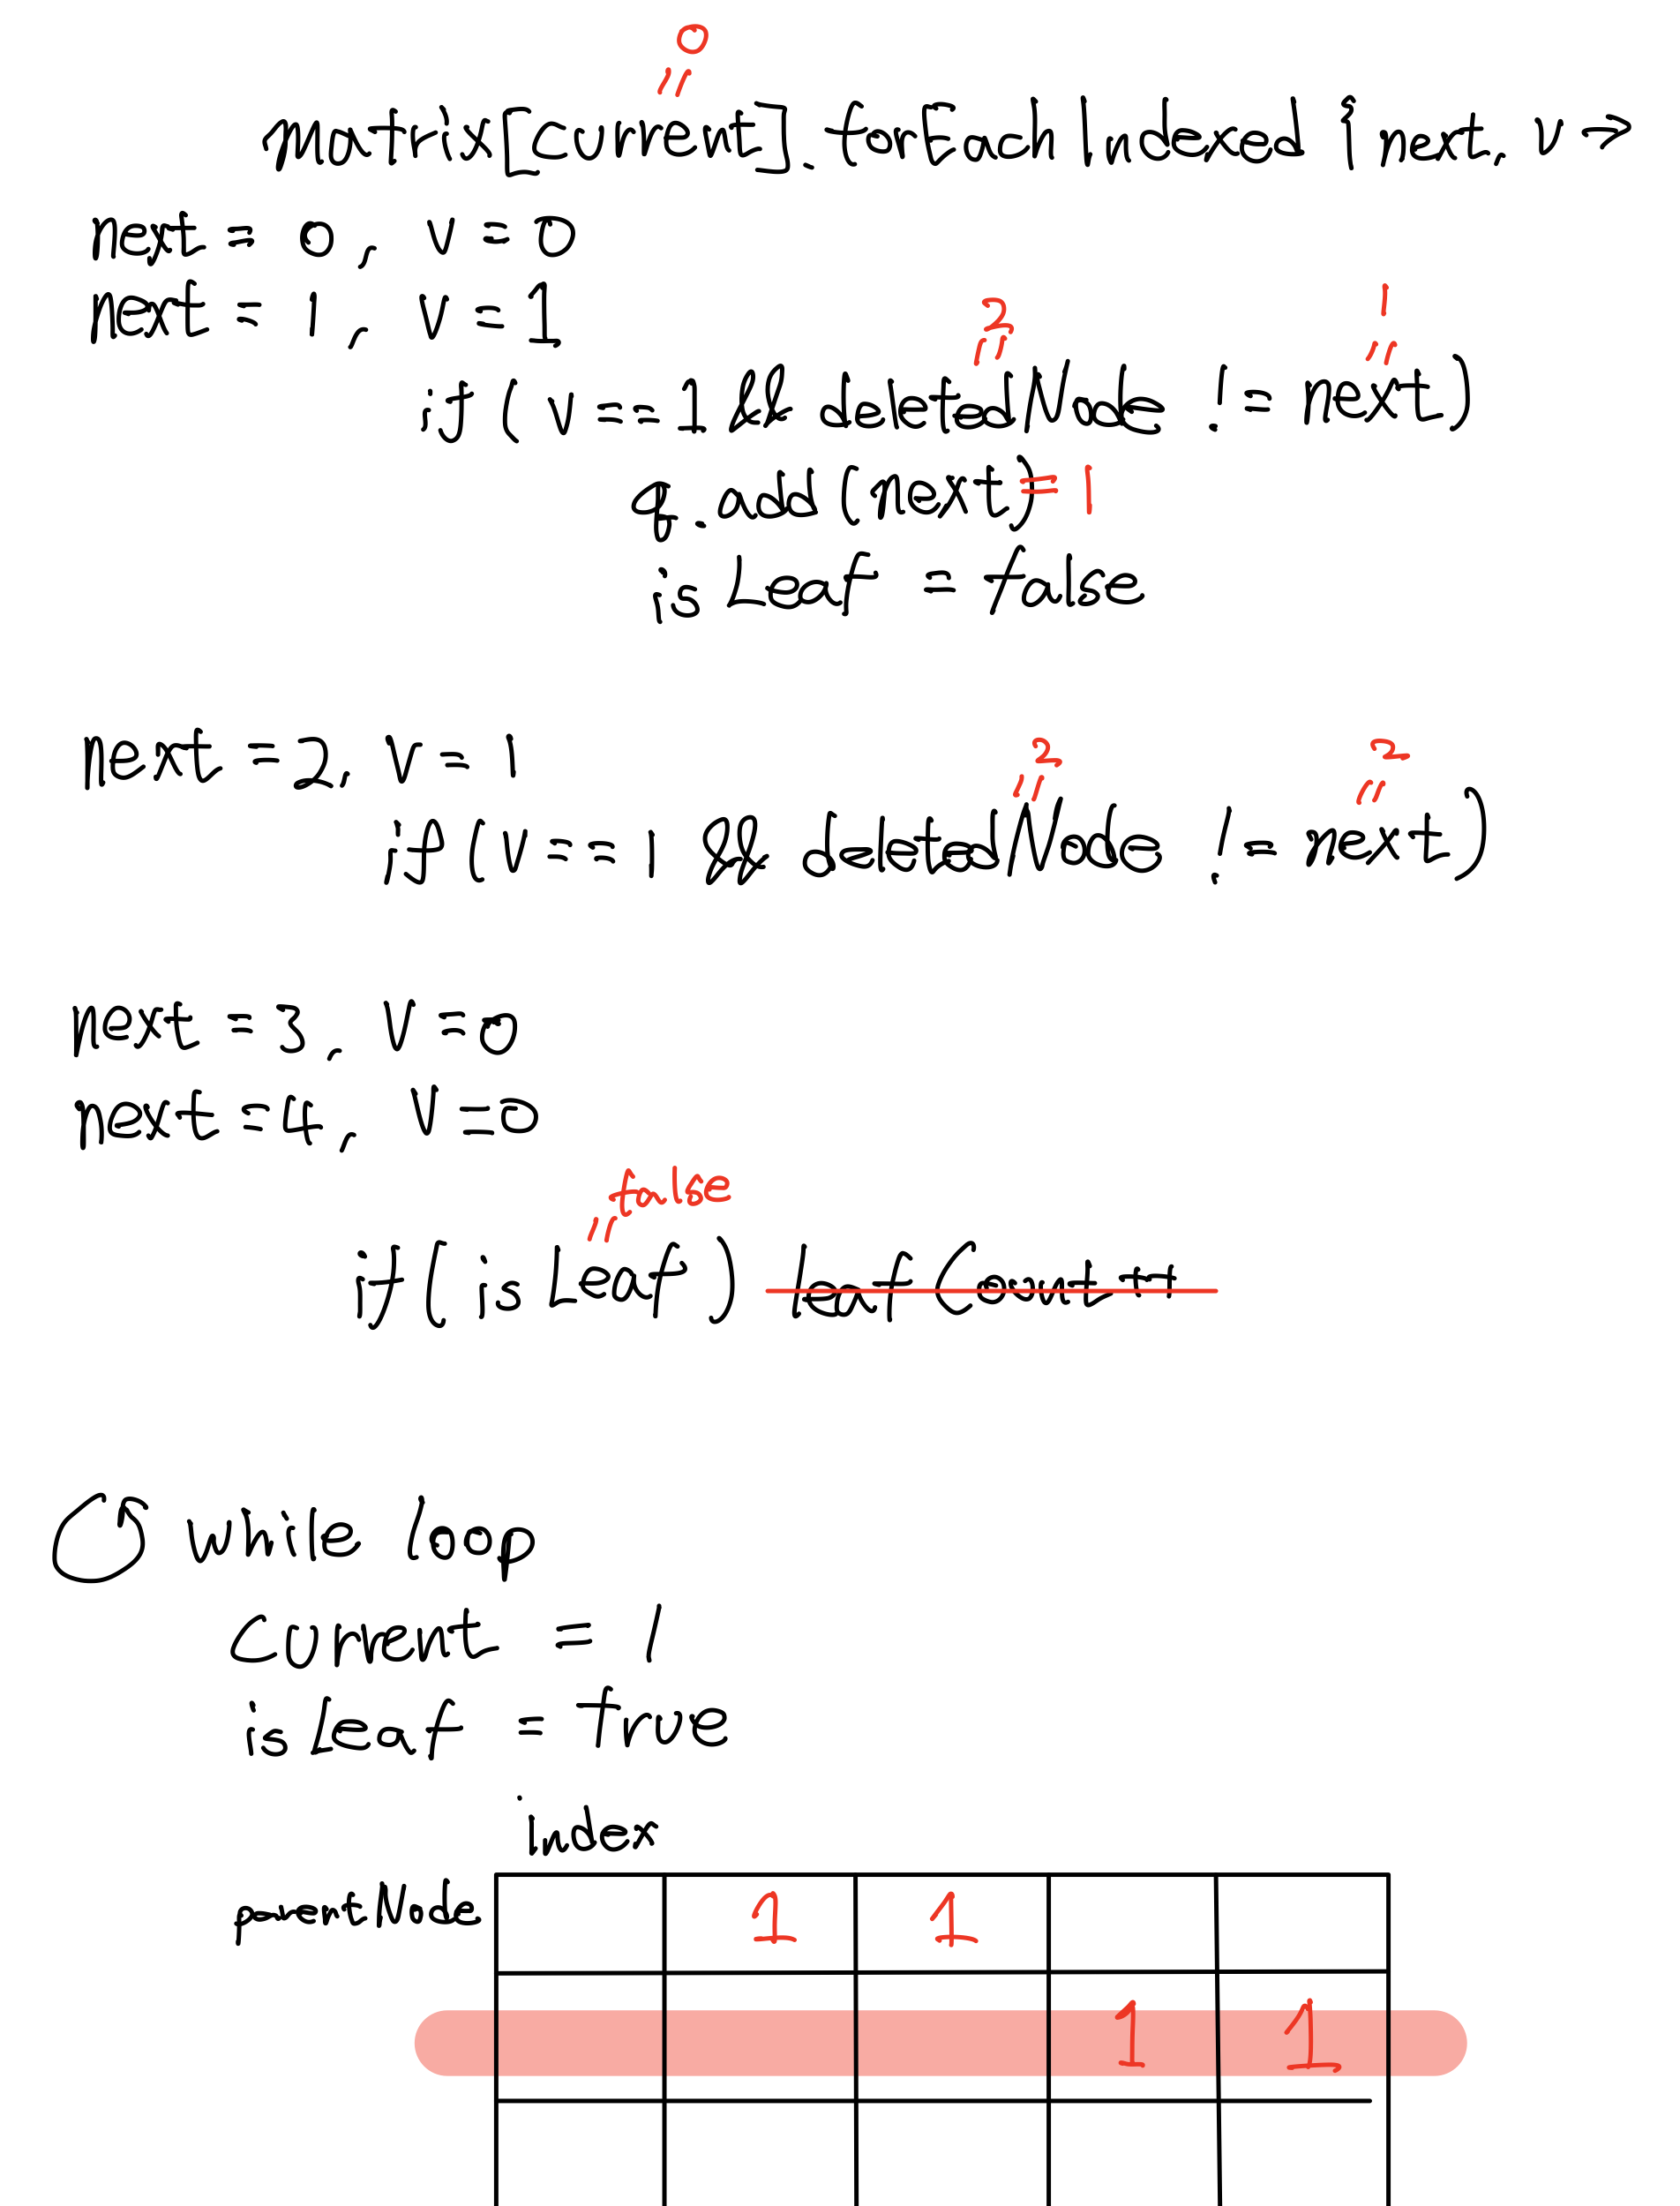 0
"
matrix[current].forEachIndexed { next, v ->
next = 0, v = 0
next = 1, v = 1
2 1
" "
if ( v == 1 && deletedNode != next)
q.add(next) = 1
isLeaf = false
next = 2, v = 1
2 2
" "
if (v == 1 && deletedNode != next)
next = 3, v = 0
next = 4, v = 0
false
"
if( isLeaf ) leafCount++
while loop
current = 1
isLeaf = true
index
parentNode 1 1
1 1